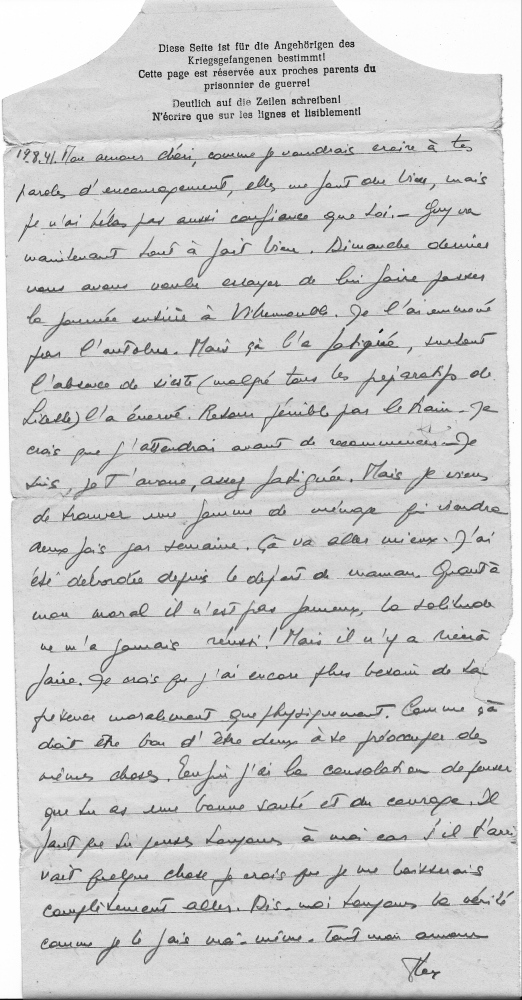 Diese Seite ist für die Angehörigen des
Kriegsgefangenen bestimmt!
Cette page est réservée aux proches parents du
prisonnier de guerre!
Deutlich auf die Zeilen schreiben!
N'écrire que sur les lignes et lisiblement!
19.8.41. Mon amour chéri, comme je voudrais croire à tes
paroles d'encouragement, elles me font du bien, mais
je n'ai hélas pas aussi confiance que toi. - Guy va
maintenant tout à fait bien. Dimanche dernier
nous avons voulu essayer de lui faire passer
la journée entière à Villemomble. Je l'ai emmené
par l'autobus. Mais çà l'a fatigué, surtout
l'absence de sieste (malgré tous les préparatifs de
) l'a énervé. Retour pénible par le train. Je
crois que j'attendrai avant de recommencer. - Je
suis, je t'avoue, assez fatiguée. Mais je viens
de trouver une femme de ménage qui viendra
deux fois par semaine. Çà va aller mieux. J'ai
été débordée depuis le départ de maman. Quant à
mon moral il n'est pas fameux, la solitude
ne m'a jamais réussi! Mais il n'y a rien à
faire. Je crois que j'ai encore plus besoin de ta
présence moralement que physiquement. Comme çà
doit être bon d'être deux à se préoccuper des
mêmes choses. Enfin j'ai la consolation de penser
que tu as une bonne santé et du courage. Il
faut que tu penses toujours à moi car s'il t'arri-
vait quelque chose je crois que je me laisserais
complètement aller. Dis-moi toujours la vérité
comme je le fais moi-même. Tout mon amour